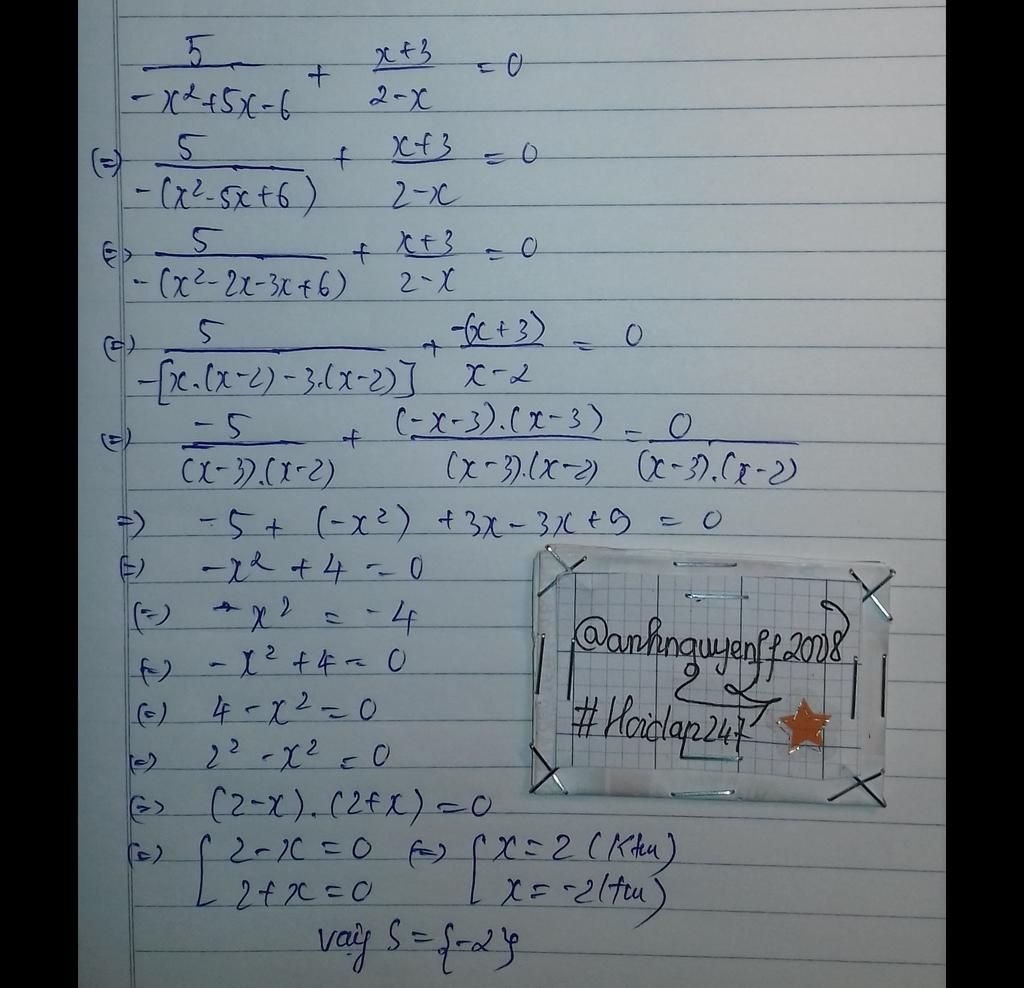 5/(-x²+5x-6) + (x+3)/(2-x) = 0
(=) 5/(-(x²-5x+6)) + (x+3)/(2-x) = 0
(=) 5/(-(x²-2x-3x+6)) + (x+3)/(2-x) = 0
(=) 5/(-[x.(x-2)-3.(x-2)]) + (-(x+3))/(x-2) = 0
(=) -5/((x-3).(x-2)) + ((-x-3).(x-3))/((x-3).(x-2)) = 0/((x-3).(x-2))
=) -5 + (-x²) + 3x - 3x + 9 = 0
(=) -x² + 4 = 0
(=) - x² = -4
(=) -x² + 4 = 0
(=) 4 - x² = 0
(=) 2² - x² = 0
(=) (2-x).(2+x) = 0
(=) [ 2-x = 0 (=) [ x = 2 (Ktm)
2+x = 0 x = -2 (tm)
vậy S = {-2}
@anhnguyenff2008
#Hoidap247